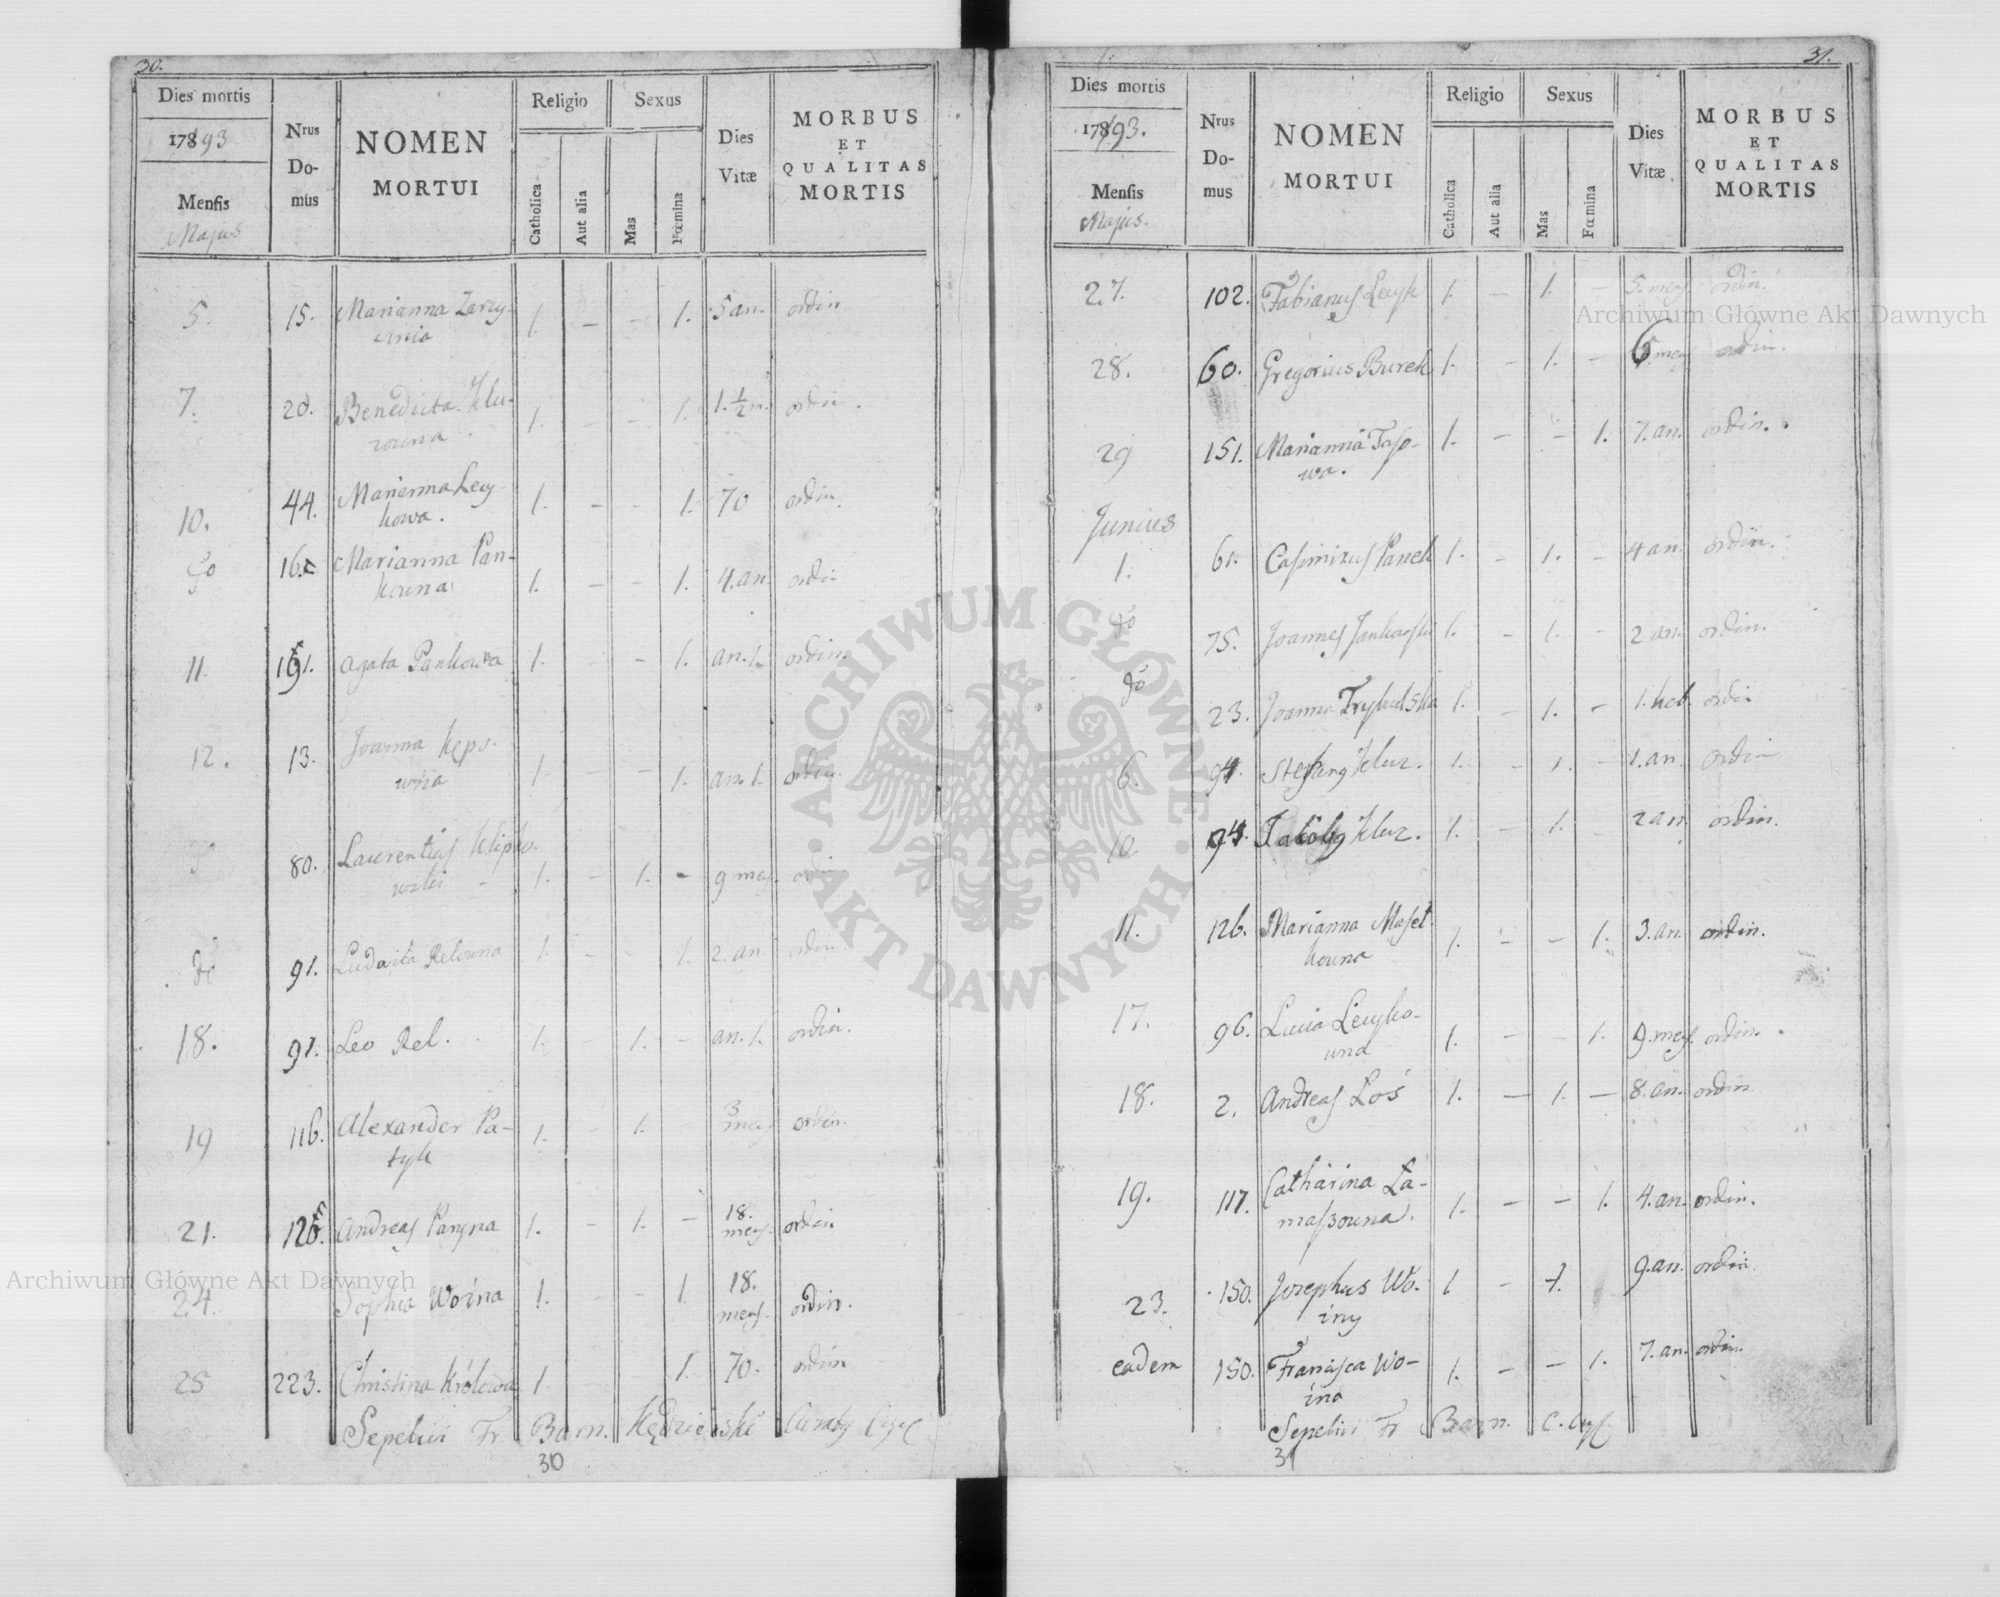 30.
Dies mortis
1793
Mensis
Majus
Nrus Domus
NOMEN MORTUI
Religio
Catholica
Aut alia
Sexus
Mas
Fœmina
Dies Vitæ
MORBUS ET QUALITAS MORTIS
5. 15. Marianna Zarzy- 1. – – 1. 5 an. ordin
7. 20. Benedicta Klu- 1. – – 1. 1. ½ m. ordin.
zouna
10. 44. Marianna Lecy- 1. – – 1. 70 ordin.
kowa.
do 16. Marianna Pan- 1. – – 1. 4. an. ordin
kouna
11. 191. Agata Pankowa 1. – – 1. an. ordin.
12. 13. Joanna Kępo- 1. – – 1. an. 1. ordin.
wna
80. Laurentius Klipko- 1. – 1. – 9 mes. ordin
wski
do 91. Ludovita Relouna 1. – – 1. 2. an. ordin
18. 91. Leo Rel. 1. – 1. – an. 1. ordin.
19 116. Alexander Pa- 1. – 1. – 3 mes. ordin.
tyk
21. Andreas Paryna 1. – 1. – 18. mens. ordin.
24. Sophia Woina 1. – – 1. 18. mens. ordin.
25 223. Christina Królowa 1. 1. 70. ordin
Sepelivi Fr Barn. Kędzierski
30
31.
Dies mortis
1793.
Mensis
Majus.
Nrus Domus
NOMEN MORTUI
Religio
Catholica
Aut alia
Sexus
Mas
Fœmina
Dies Vitæ
MORBUS ET QUALITAS MORTIS
27. 102. Fabianus Lecyk 1. – 1. – 5. mes. ordin.
28. 60. Gregorius Burek 1. – 1. – 6. mes. ordin.
29 151. Marianna Taso- 1. – – 1. 7. an. ordin.
wa.
Junius
1. 61. Casimirus Panek 1. – 1. – 4 an. ordin.
do 75. Joannes Jankowski 1. – 1. – 2 an. ordin.
do 23. Joanna 1. – 1. – 1. heb. ordin
6. 94. Stephanus Kluz. 1. – 1. – 1. an. ordin
10 94. Jakobus Kluz. 1. – 1. – 2 an. ordin.
11. 126. Marianna Maset- 1. – – 1. 3. an. ordin.
kouna
17. 96. Lucia Lecyko- 1. – – 1. 9. mes. ordin.
wna
18. 2. Andreas Łoś 1. – 1. – 8. an. ordin
19. 117. Catharina Ła- 1. – – 1. 4. an. ordin.
maszouna.
23. 150. Josephus Wo- 1 – 1. 9. an. ordin.
iny
eadem 150. Francisca Wo- 1. – – 1. 7. an. ordin.
ina
Sepelivi Fr Barn.
31
Archiwum Główne Akt Dawnych
Archiwum Główne Akt Dawnych
ARCHIWUM GŁÓWNE · AKT DAWNYCH ·